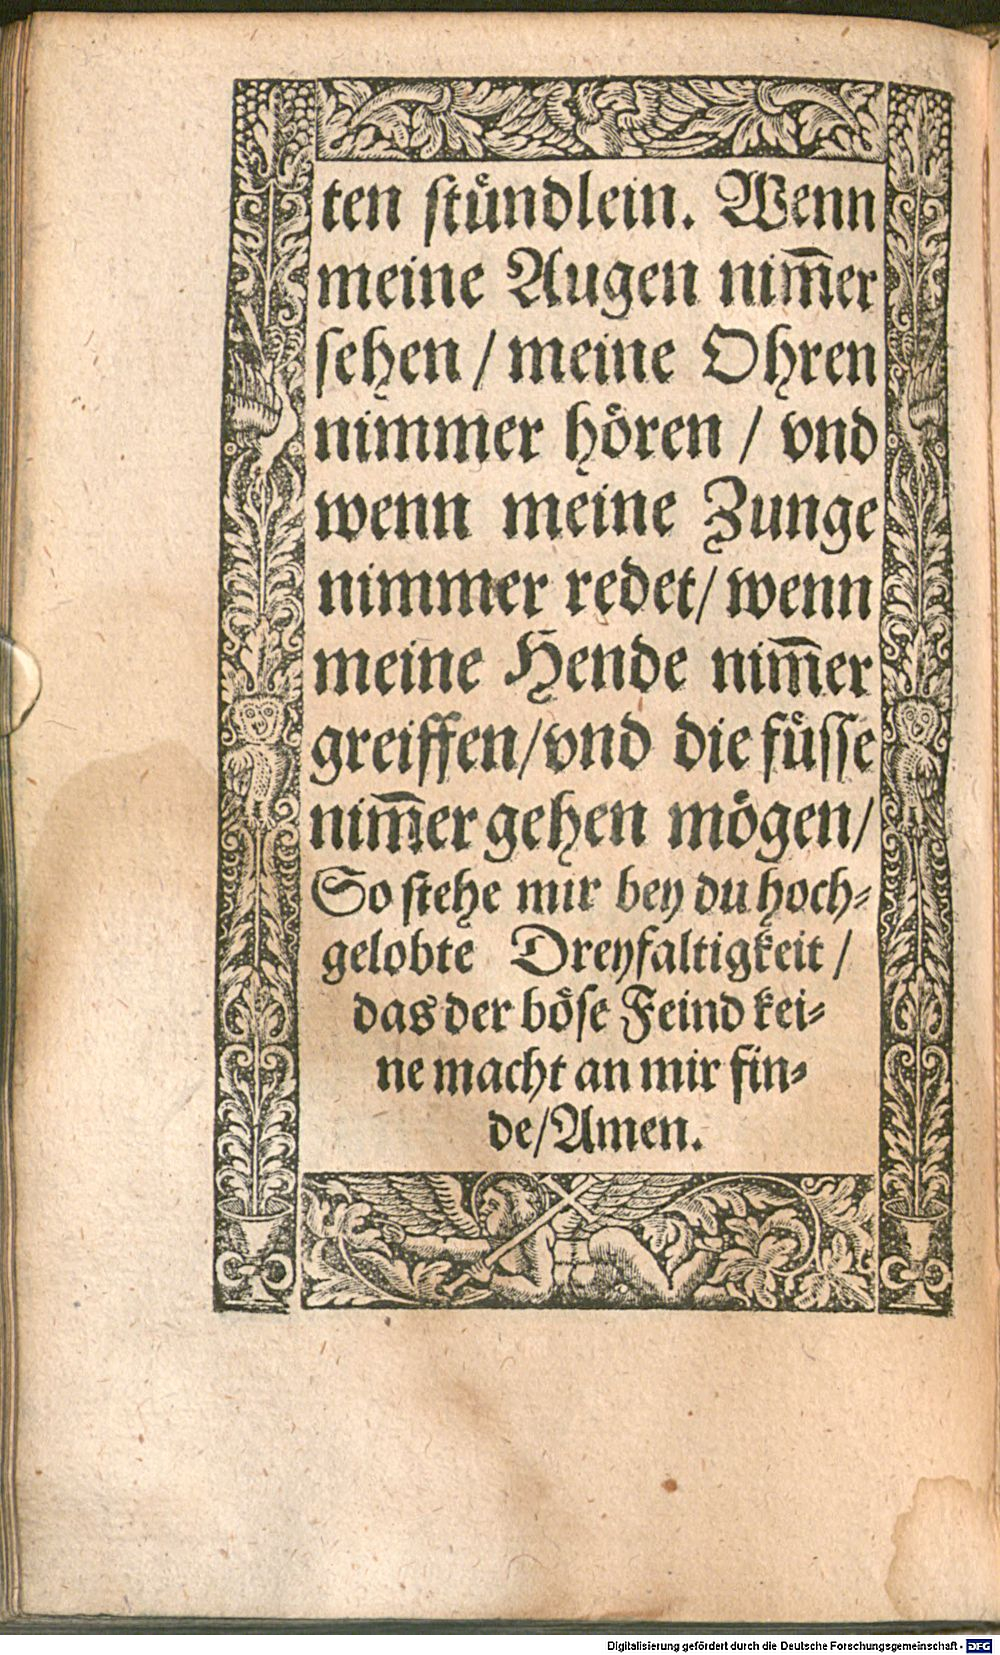 ten ſtuͤndlein. Wenn
meine Augen nim̄er
ſehen / meine Ohren
nimmer hoͤren / vnd
wenn meine Zunge
nimmer redet / wenn
meine Hende nim̄er
greiffen / vnd die fuͤſſe
nim̄er gehen moͤgen /
So ſtehe mir bey du hoch⸗
gelobte Dreyfaltigkeit /
das der boͤſe Feind kei⸗
ne macht an mir fin⸗
de / Amen.
Digitalisierung gefördert durch die Deutsche Forschungsgemeinschaft - DFG